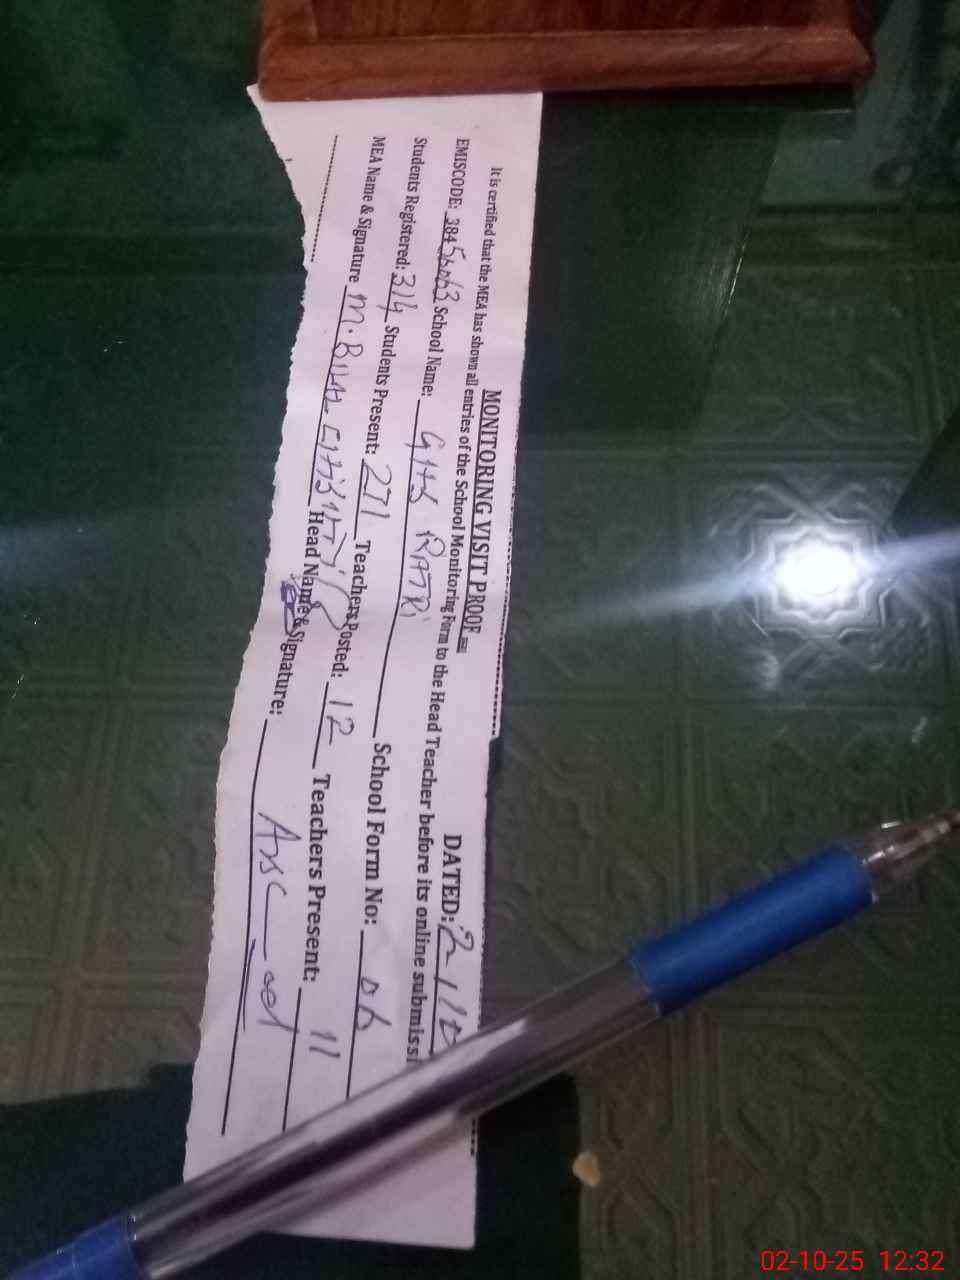 MONITORING VISIT PROOF DATED: 2/10
It is certified that the MEA has shown all entries of the School Monitoring Form to the Head Teacher before its online submissi
EMISCODE: 38456063 School Name: GHS RATRI School Form No: 06
Students Registered: 314 Students Present: 271 Teachers Posted: 12 Teachers Present: 11
MEA Name & Signature M. BILAL Head Name & Signature:
02-10-25 12:32